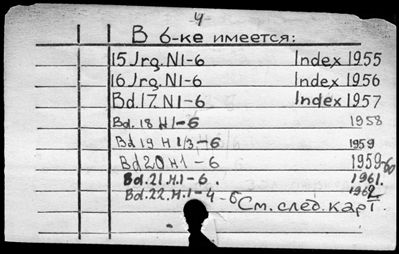 4
В 6-ке имеется:
15 Jrg. N1-6 Index 1955
16 Jrg. N1-6 Index 1956
Bd. 17. N1-6 Index 1957
Bd. 18 H1-6 1958
Bd 19 H1/3-6 1959
Bd 20 H1-6 1959-60
Bd. 21. H.1-6. 1961.
Bd. 22. H.1-4-6 1962
См. след. карт.